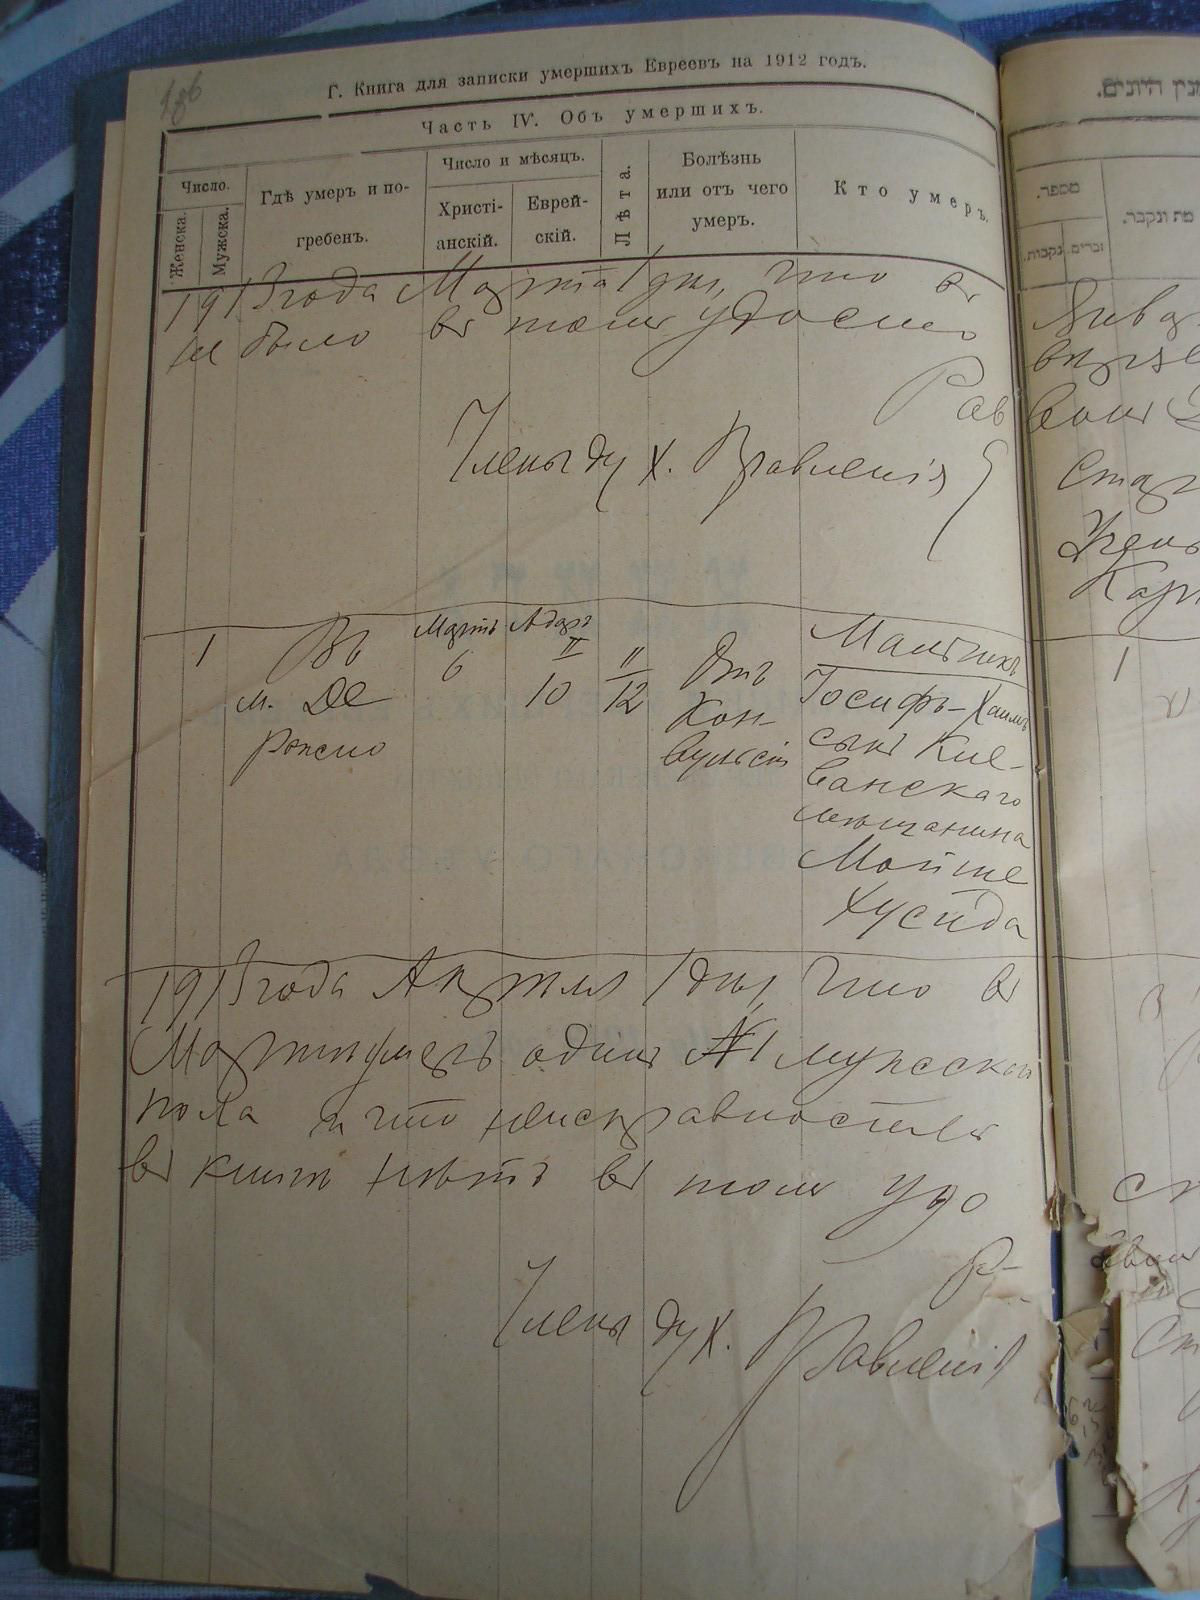 Г. Книга для записки умершихъ Евреевъ на 1912 годъ.
Часть IV. Объ умершихъ.
Число.
Женска.
Мужска.
Гдѣ умеръ и по-
гребенъ.
Число и мѣсяцъ.
Христі-
анскій.
Еврей-
скій.
Лѣта.
Болѣзнь
или отъ чего
умеръ.
Кто умеръ.
1913 года Марта 1 дня, что въ
не было въ томъ удостов
Рав
Члены дух. Правленія
1
Въ
м. Де
Мартъ
6
Адаръ
II
10
11
12
Отъ
Кон-
вульсій
Мальчикъ
Іосифъ-Хаимъ
сынъ
ванскаго
мѣщанина
Мойше
Хусида
1913 года Апрѣля 1 дня, что въ
Мартѣ умеръ одинъ №1 мужской
пола и что неисправностей
въ книгѣ нѣтъ въ томъ удо
Р
Члены дух. Правленія
מספר.
נקבות.
זכרים.
מת ונקבר.
1